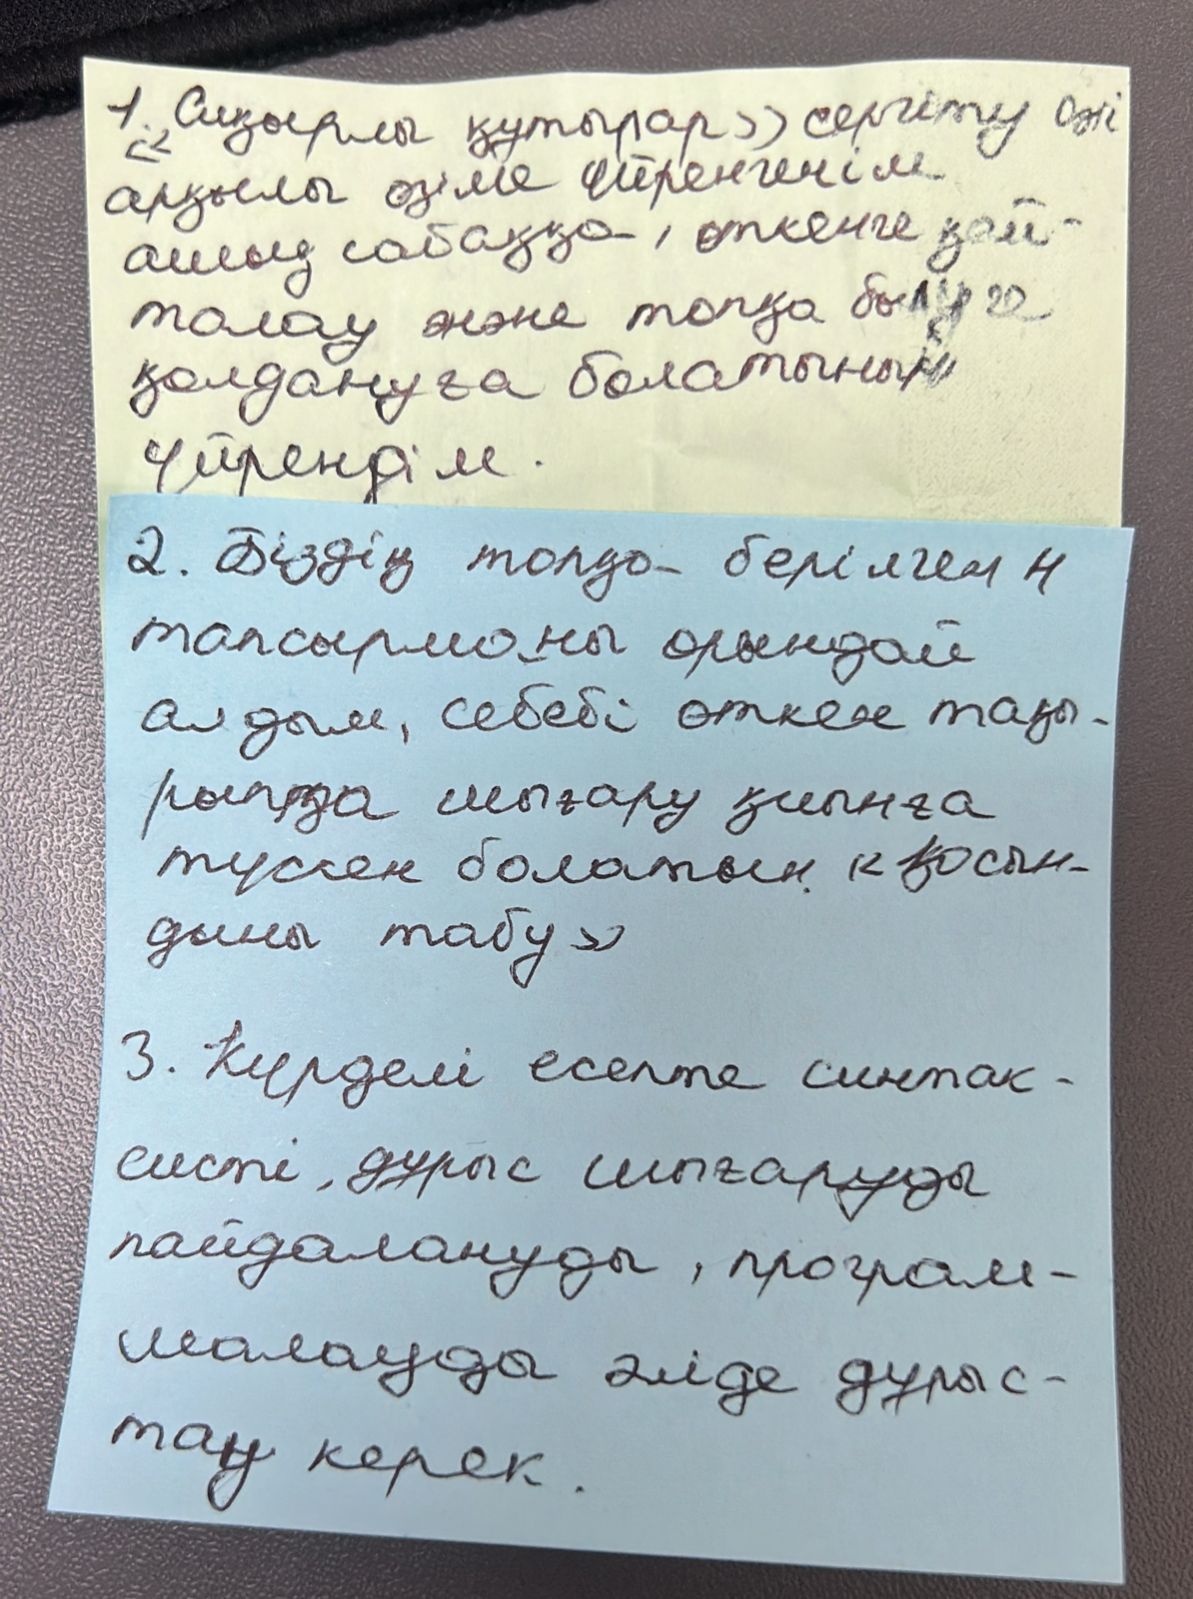 1. «Сиқырлы құтырар» сергіту әні
арқылы өзіме үйренгенім
ашық сабаққа, өткенге қай-
талау және топқа бөлуге
қолдануға болатынын
үйрендім.
2. Біздің топқа берілген 4
тапсырманы орындай
алдым, себебі өткен тақы-
рыпқа шығару қиынға
түскен болатын «Қосын-
дыны табу»
3. Күрделі есепте синтак-
систі, дұрыс шығаруды
пайдалануды, програм-
малауды әліде дұрыс-
тау керек.